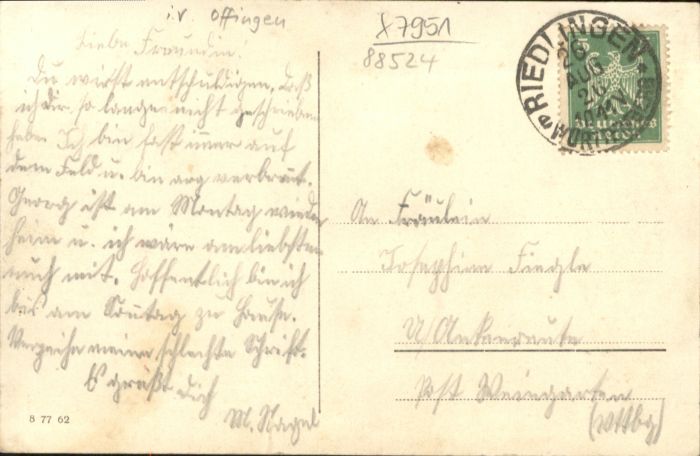 i. V. Offingen
X7951
88524
RIEDLINGEN
26
AUG
26
Liebe Freundin!
Du wirst entschuldigen, daß
ich dir so lange nicht geschrieben
habe. Ich bin fast immer auf
dem Feld u. bin arg verbrannt.
Georg ist am Montag wieder
heim u. ich wäre am liebsten
auch mit. Hoffentlich bin ich
bis am Sonntag zu Hause.
Verzeihe meine schlechte Schrift.
Es grüßt dich
M. Nagel
An Fräulein
Josephine Fiegle
U/Ankenreute
Post Weingarten
(Wttbg)
8 77 62